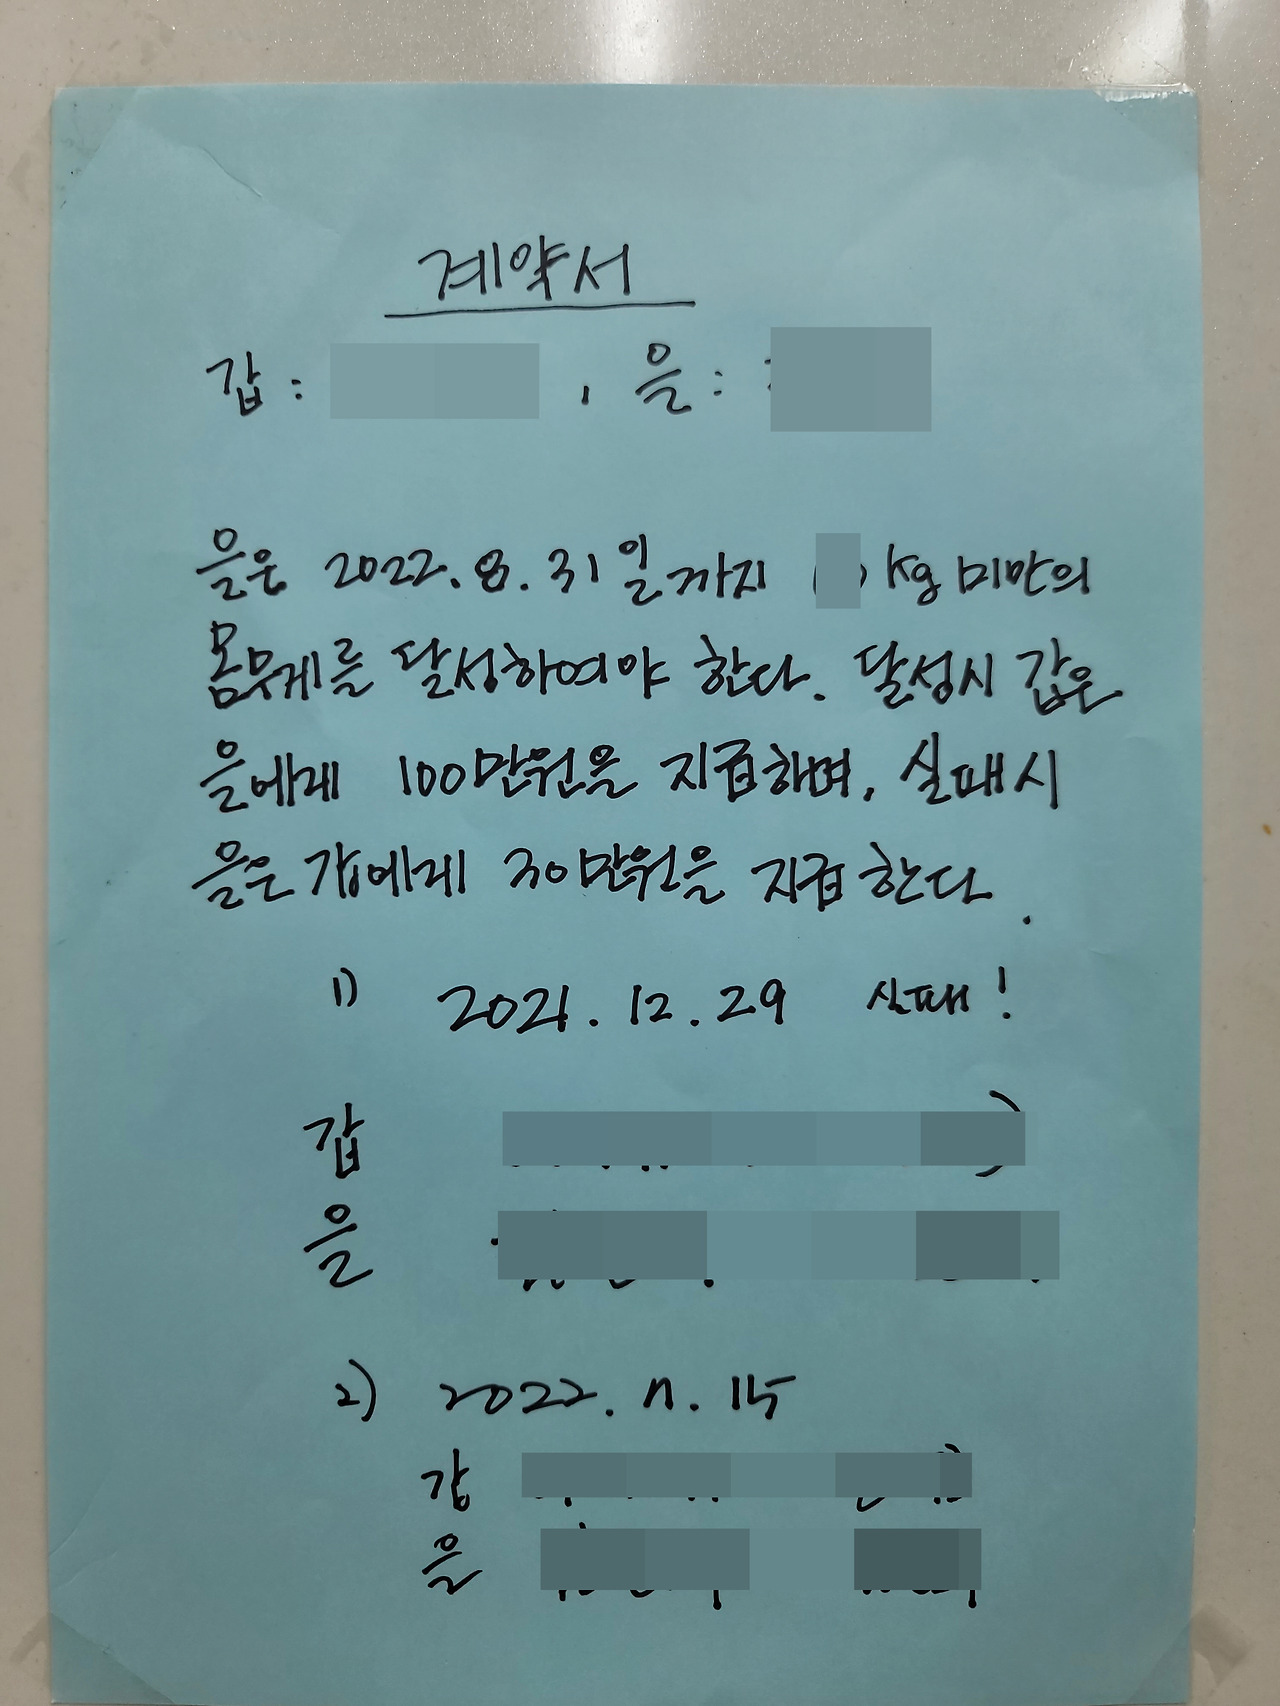 계약서
갑 : , 을 :
을은 2022.8.31일까지 kg 미만의
몸무게를 달성하여야 한다. 달성시 갑은
을에게 100만원을 지급하며, 실패시
을은 갑에게 30만원을 지급한다.
1) 2021.12.29 실패!
갑
을
2) 2022.11.15
갑
을